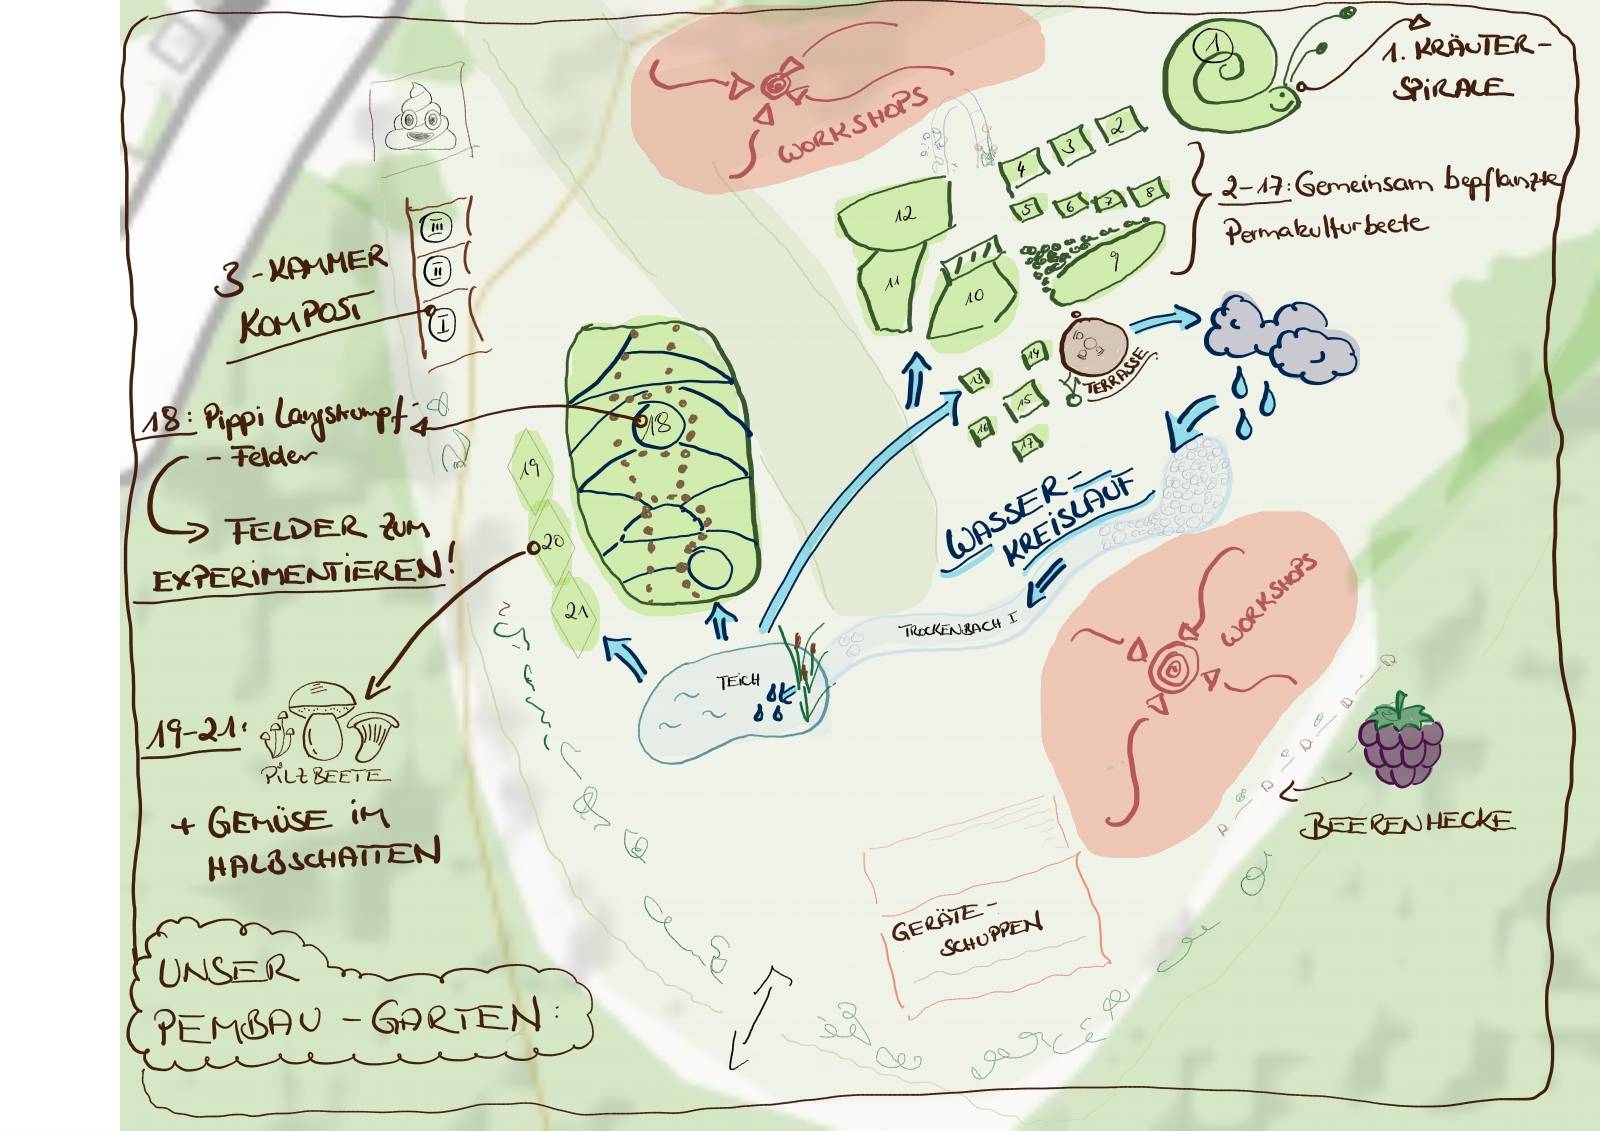 1
1. KRÄUTER-
SPIRALE
WORKSHOPS
2
3
4
5
6
7
8
9
10
11
12
2-17: Gemeinsam bepflanzte
Permakulturbeete
III
II
I
3-KAMMER
KOMPOST
13
14
15
16
17
TERRASSE
18: Pippi Langstrumpf-
- Felder
FELDER ZUM
EXPERIMENTIEREN!
18
19
20
21
WASSER-
KREISLAUF
TROCKENBACH I
TEICH
WORKSHOPS
19-21:
PILZBEETE
+ GEMÜSE IM
HALBSCHATTEN
BEERENHECKE
GERÄTE-
SCHUPPEN
UNSER
PEMBAU-GARTEN: